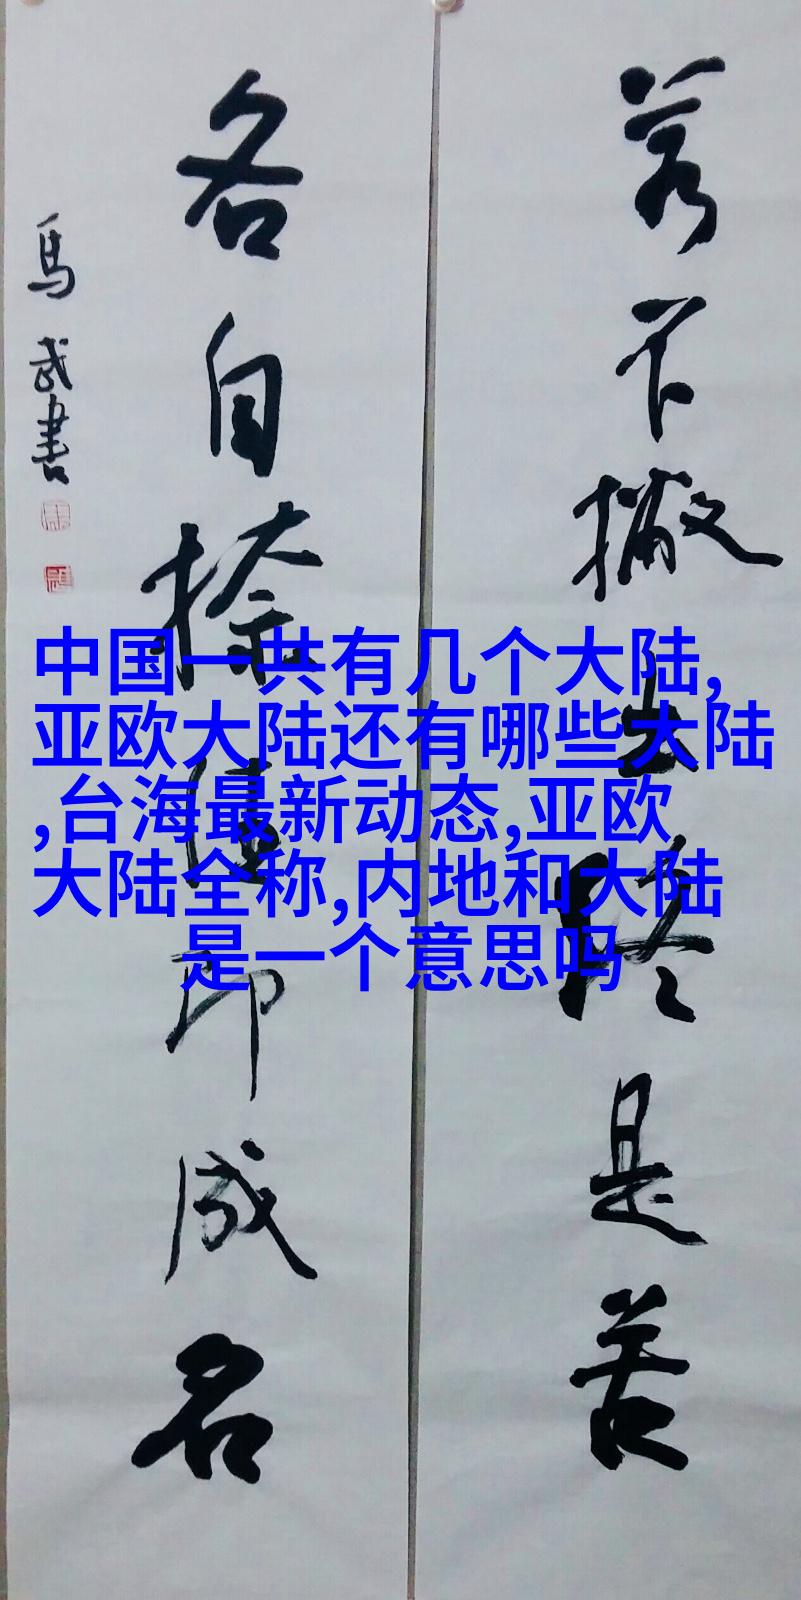 若不撇終是苦
各自捺即成名
馬武書
中国一共有几个大陆,
亚欧大陆还有哪些大陆
,台海最新动态,亚欧
大陆全称,内地和大陆
是一个意思吗